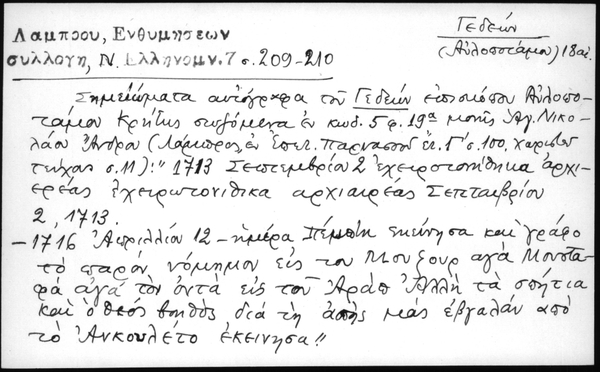 Λαμπρου, Ενθυμησεων
συλλογη, Ν. Ελληνομν. 7 σ. 209-210
Γεδεών
(Αὐλοποτάμου) 18 αἰ.
Σημειώματα αὐτόγραφα τοῦ Γεδεών ἐπισκόπου Αὐλοπο-
τάμου Κρήτης σωζόμενα ἐν κωδ. 5 φ. 19α μονῆς Ἁγ. Νικο-
λάου Ἄνδρου (Λάμπρος, ἐν Ἐπετ. Παρνασσοῦ ἔτ. Γ' σ. 100, χαρτῶον
τεῦχος σ. 11): "1713 Σεπτεμβρίου 2 ἐχειροτονήθηκα ἀρχι-
ερέας ἐχειρωτονιθικα αρχιαιρέας Σεπταιβρίου
2, 1713.
-1716 Ἀπριλλίου 12 - ημέρα Πέμπτη εκείνησα καὶ γράφο
τὸ παρὸν νόμημον εἰς τον Μουζουρ αγά Μουστα-
φά αγά τὸν ὀντά εἰς τοῦ Ἀράπ Ἀλλῆ τὰ σπήτια
καὶ ὁ θεός βοηθός διά τὴ μᾶς έβγαλάν από
τὸ Ἀνκουλέτο ἐκεινησα"